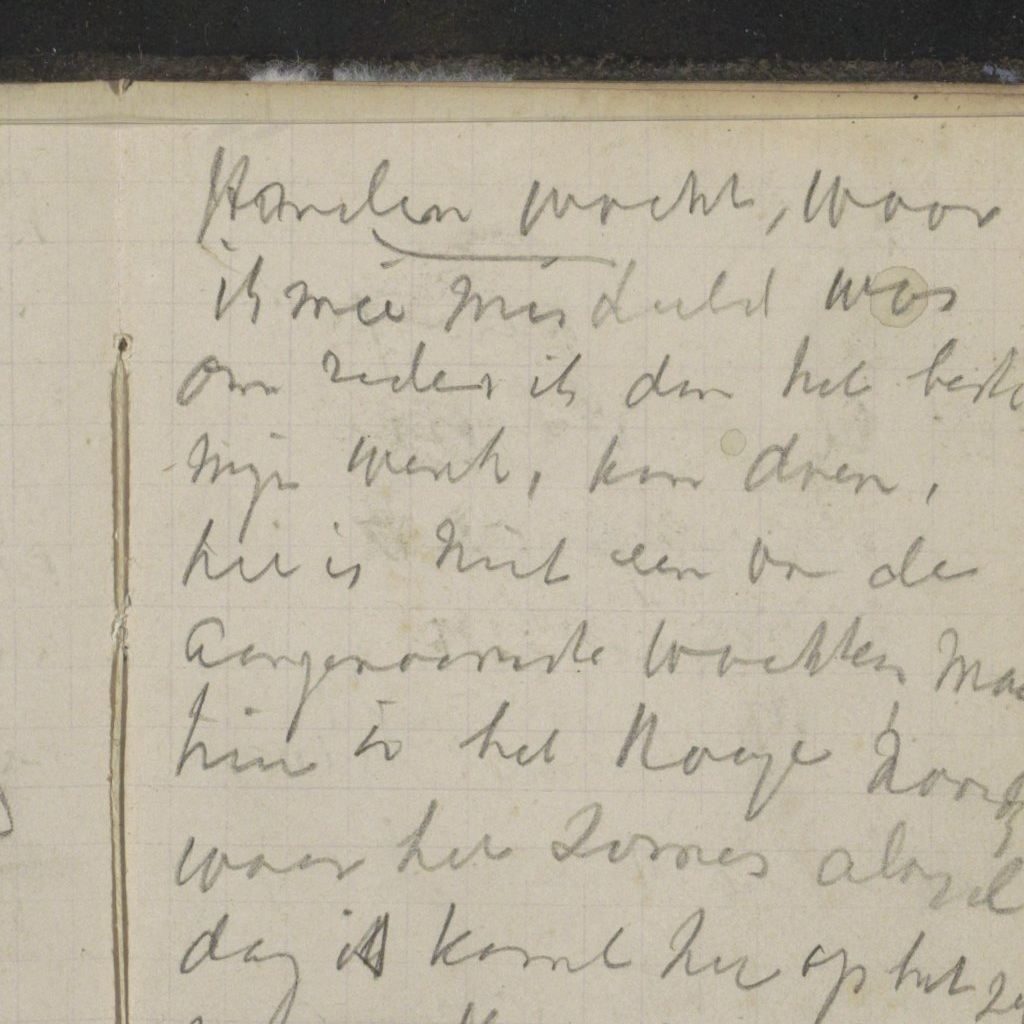 Honden wacht, waar
ik mee mis deeld was
om reden ik dan het beste
mijn werk, kan doen,
het is niet een van de
Aangenaamste wachten, maar
hier in het Hooge Noord
waar het Zomers altijd
dag is komt het op het ze